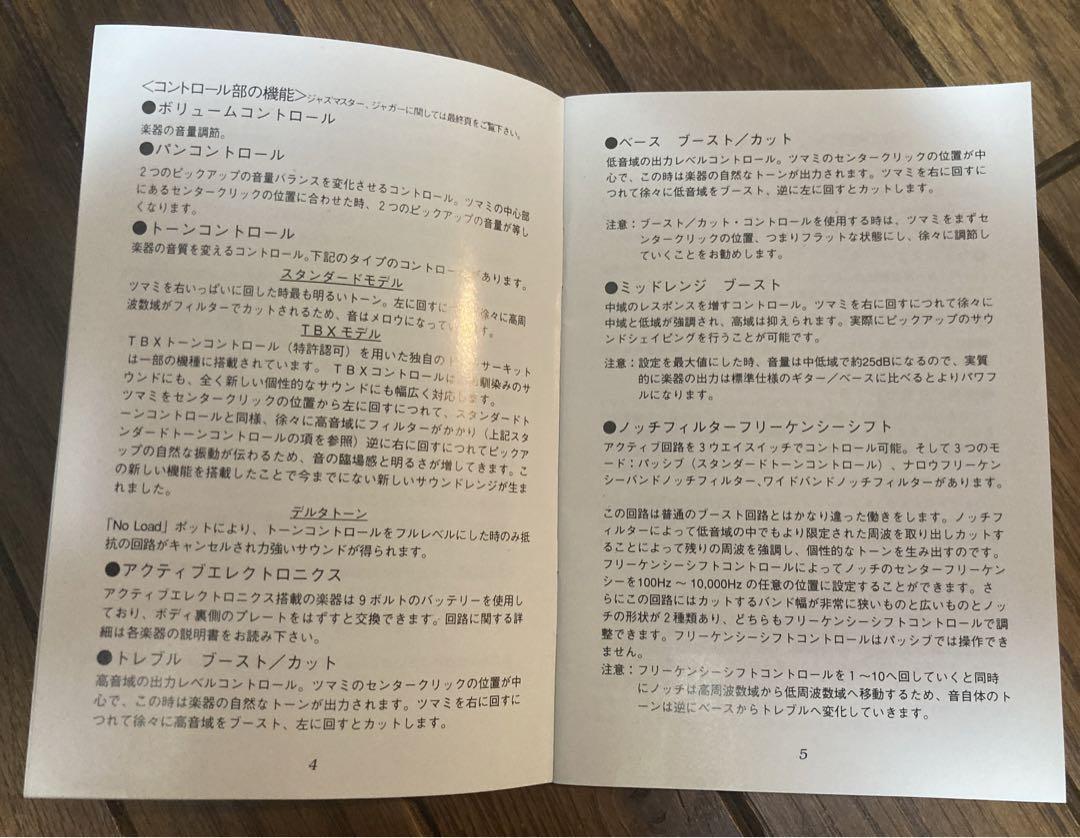 <コントロール部の機能>ジャズマスター、ジャガーに関しては最終頁をご覧下さい。
●ボリュームコントロール
楽器の音量調節。
●パンコントロール
2つのピックアップの音量バランスを変化させるコントロール。ツマミの中心部
にあるセンタークリックの位置に合わせた時、2つのピックアップの音量が等し
くなります。
●トーンコントロール
楽器の音質を変えるコントロール。下記のタイプのコントロ があります。
スタンダードモデル
ツマミを右いっぱいに回した時最も明るいトーン。左に回すに 徐々に高周
波数域がフィルターでカットされるため、音はメロウになってい す。
TBXモデル
TBXトーンコントロール（特許認可）を用いた独自の サーキット
は一部の機種に搭載されています。 TBXコントロールは 馴染みのサ
ウンドにも、全く新しい個性的なサウンドにも幅広く対応します。
ツマミをセンタークリックの位置から左に回すにつれて、スタンダードト
ーンコントロールと同様、徐々に高音域にフィルターがかかり（上記スタ
ンダードトーンコントロールの項を参照）逆に右に回すにつれてピックア
ップの自然な振動が伝わるため、音の臨場感と明るさが増してきます。こ
の新しい機能を搭載したことで今までにない新しいサウンドレンジが生ま
れました。
デルタトーン
「No Load」ポットにより、トーンコントロールをフルレベルにした時のみ抵
抗の回路がキャンセルされ力強いサウンドが得られます。
●アクティブエレクトロニクス
アクティブエレクトロニクス搭載の楽器は9ボルトのバッテリーを使用し
ており、ボディ裏側のプレートをはずすと交換できます。回路に関する詳
細は各楽器の説明書をお読み下さい。
●トレブル ブースト／カット
高音域の出力レベルコントロール。ツマミのセンタークリックの位置が中
心で、この時は楽器の自然なトーンが出力されます。ツマミを右に回すに
つれて徐々に高音域をブースト、左に回すとカットします。
4
●ベース ブースト／カット
低音域の出力レベルコントロール。ツマミのセンタークリックの位置が中
心で、この時は楽器の自然なトーンが出力されます。ツマミを右に回すに
つれて徐々に低音域をブースト、逆に左に回すとカットします。
注意：ブースト／カット・コントロールを使用する時は、ツマミをまずセ
ンタークリックの位置、つまりフラットな状態にし、徐々に調節し
ていくことをお勧めします。
●ミッドレンジ ブースト
中域のレスポンスを増すコントロール。ツマミを右に回すにつれて徐々に
中域と低域が強調され、高域は抑えられます。実際にピックアップのサウ
ンドシェイピングを行うことが可能です。
注意：設定を最大値にした時、音量は中低域で約25dBになるので、実質
的に楽器の出力は標準仕様のギター／ベースに比べるとよりパワフ
ルになります。
●ノッチフィルターフリーケンシーシフト
アクティブ回路を3ウエイスイッチでコントロール可能。そして3つのモ
ード：パッシブ（スタンダードトーンコントロール）、ナロウフリーケン
シーバンドノッチフィルター、ワイドバンドノッチフィルターがあります。
この回路は普通のブースト回路とはかなり違った働きをします。ノッチフ
ィルターによって低音域の中でもより限定された周波を取り出しカットす
ることによって残りの周波を強調し、個性的なトーンを生み出すのです。
フリーケンシーシフトコントロールによってノッチのセンターフリーケン
シーを100Hz～10,000Hzの任意の位置に設定することができます。さ
らにこの回路にはカットするバンド幅が非常に狭いものと広いものとノッ
チの形状が2種類あり、どちらもフリーケンシーシフトコントロールで調
整できます。フリーケンシーシフトコントロールはパッシブでは操作でき
ません。
注意：フリーケンシーシフトコントロールを1～10へ回していくと同時
にノッチは高周波数域から低周波数域へ移動するため、音自体のト
ーンは逆にベースからトレブルへ変化していきます。
5